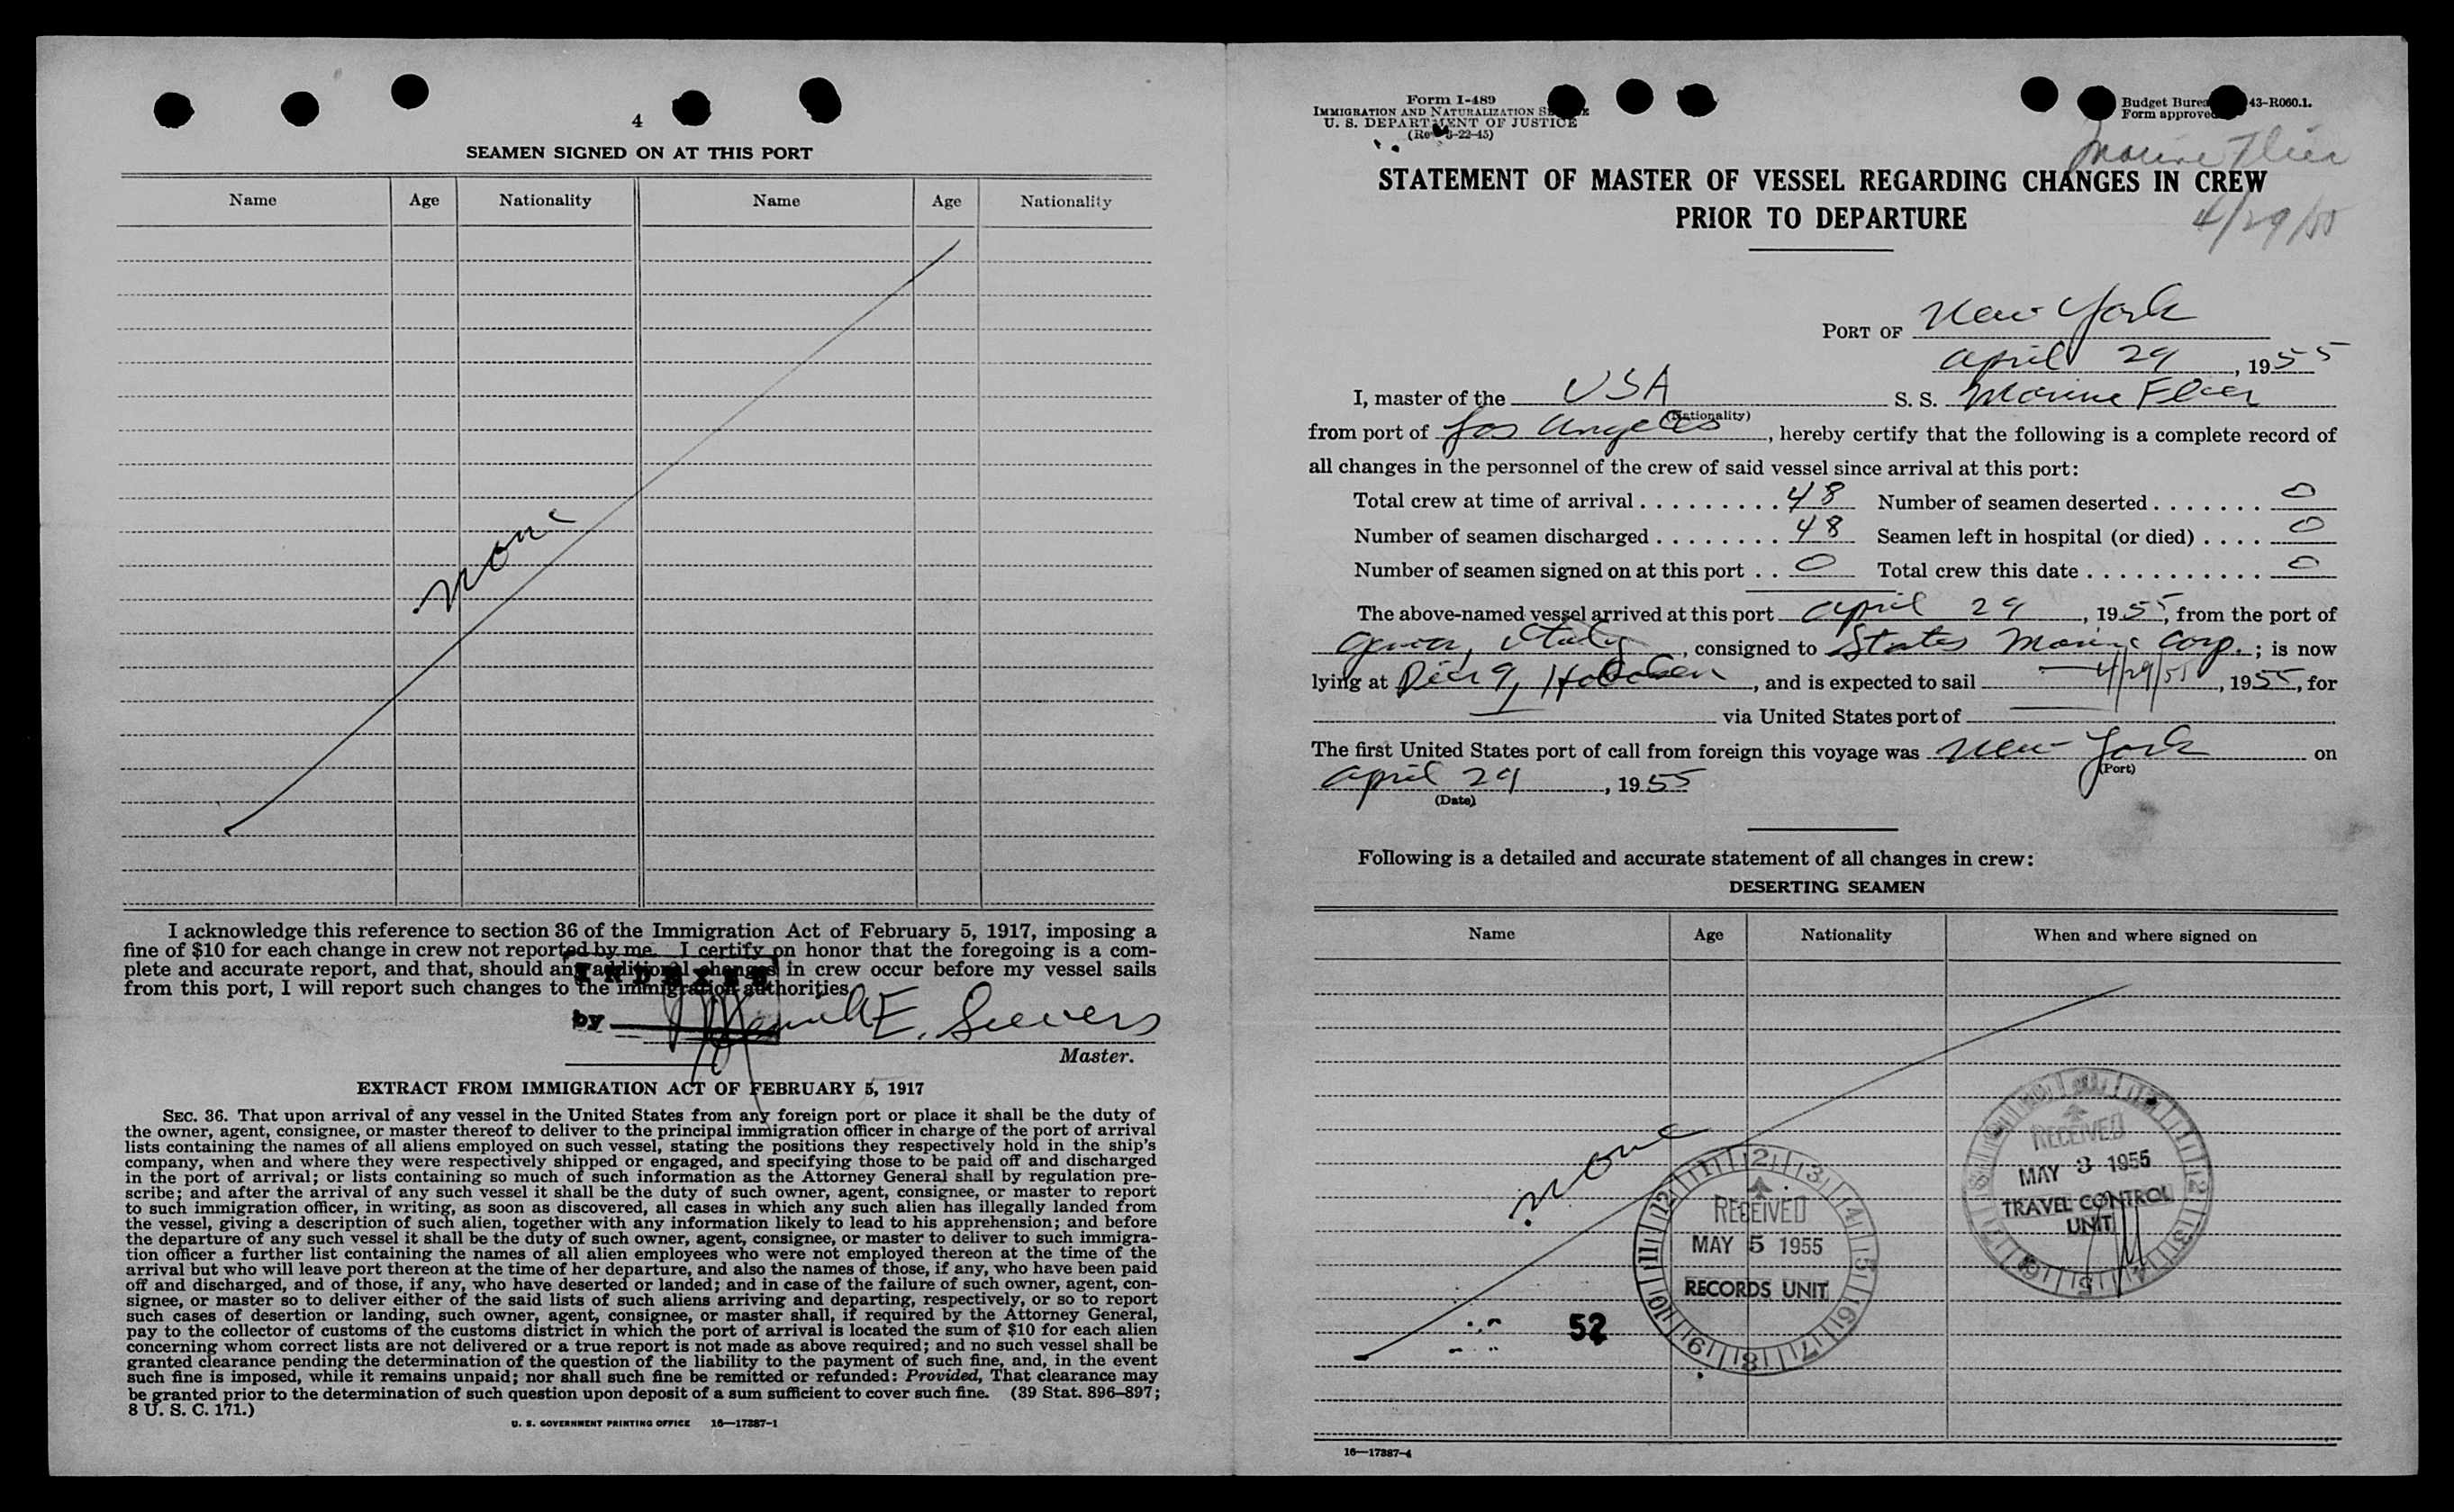 4
SEAMEN SIGNED ON AT THIS PORT
Name Age Nationality Name Age Nationality
none
I acknowledge this reference to section 36 of the Immigration Act of February 5, 1917, imposing a
fine of $10 for each change in crew not reported by me. I certify on honor that the foregoing is a com-
plete and accurate report, and that, should any additional changes in crew occur before my vessel sails
from this port, I will report such changes to the immigration authorities.
INDEXED
by
E. Sievers
Master.
EXTRACT FROM IMMIGRATION ACT OF FEBRUARY 5, 1917
SEC. 36. That upon arrival of any vessel in the United States from any foreign port or place it shall be the duty of
the owner, agent, consignee, or master thereof to deliver to the principal immigration officer in charge of the port of arrival
lists containing the names of all aliens employed on such vessel, stating the positions they respectively hold in the ship's
company, when and where they were respectively shipped or engaged, and specifying those to be paid off and discharged
in the port of arrival; or lists containing so much of such information as the Attorney General shall by regulation pre-
scribe; and after the arrival of any such vessel it shall be the duty of such owner, agent, consignee, or master to report
to such immigration officer, in writing, as soon as discovered, all cases in which any such alien has illegally landed from
the vessel, giving a description of such alien, together with any information likely to lead to his apprehension; and before
the departure of any such vessel it shall be the duty of such owner, agent, consignee, or master to deliver to such immigra-
tion officer a further list containing the names of all alien employees who were not employed thereon at the time of the
arrival but who will leave port thereon at the time of her departure, and also the names of those, if any, who have been paid
off and discharged, and of those, if any, who have deserted or landed; and in case of the failure of such owner, agent, con-
signee, or master so to deliver either of the said lists of such aliens arriving and departing, respectively, or so to report
such cases of desertion or landing, such owner, agent, consignee, or master shall, if required by the Attorney General,
pay to the collector of customs of the customs district in which the port of arrival is located the sum of $10 for each alien
concerning whom correct lists are not delivered or a true report is not made as above required; and no such vessel shall be
granted clearance pending the determination of the question of the liability to the payment of such fine, and, in the event
such fine is imposed, while it remains unpaid; nor shall such fine be remitted or refunded: Provided, That clearance may
be granted prior to the determination of such question upon deposit of a sum sufficient to cover such fine. (39 Stat. 896–897;
8 U. S. C. 171.)
U. S. GOVERNMENT PRINTING OFFICE 16—17387-1
Form I-489
IMMIGRATION AND NATURALIZATION
U. S. DEPARTMENT OF JUSTICE
3-22-45)
Budget 43-R060.1.
Form approved
Marine Flier
4/29/55
STATEMENT OF MASTER OF VESSEL REGARDING CHANGES IN CREW
PRIOR TO DEPARTURE
PORT OF New York
April 29, 1955
I, master of the USA S. S. Marine Flier
(Nationality)
from port of Los Angeles, hereby certify that the following is a complete record of
all changes in the personnel of the crew of said vessel since arrival at this port:
Total crew at time of arrival . . . . . . . . . 48 Number of seamen deserted . . . . . . . 0
Number of seamen discharged . . . . . . . . 48 Seamen left in hospital (or died) . . . . 0
Number of seamen signed on at this port . . 0 Total crew this date . . . . . . . . . . . 0
The above-named vessel arrived at this port April 29, 1955, from the port of
Genoa, Italy, consigned to States Marine Corp.; is now
lying at Pier 9, Hoboken, and is expected to sail 4/29/55, 1955, for
— via United States port of —
The first United States port of call from foreign this voyage was New York on
(Port)
April 29, 1955
(Date)
Following is a detailed and accurate statement of all changes in crew:
DESERTING SEAMEN
Name Age Nationality When and where signed on
none
RECEIVED
MAY 3 1955
TRAVEL CONTROL
UNIT
RECEIVED
MAY 5 1955
RECORDS UNIT
52
16—17387-4